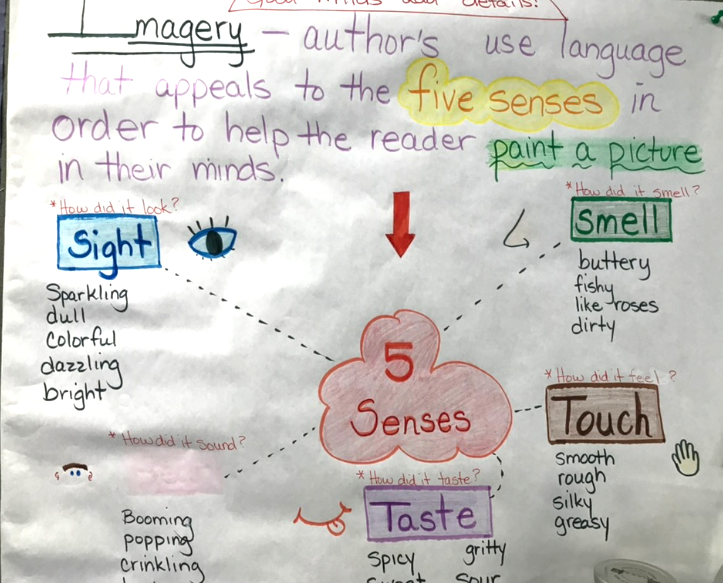 Imagery - author's use language
that appeals to the five senses in
order to help the reader paint a picture
in their minds.
*How did it look?
Sight
Sparkling
dull
Colorful
dazzling
bright
*How did it smell?
Smell
buttery
fishy
like roses
dirty
5
Senses
*How did it feel?
Touch
smooth
rough
silky
greasy
*How did it sound?
Booming
popping
crinkling
*How did it taste?
Taste
spicy gritty
sweet sour